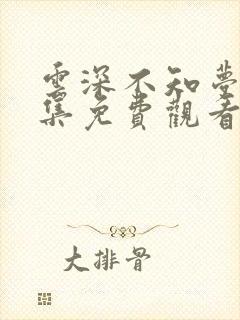 雲深不知夢
集免費觀看
大排骨